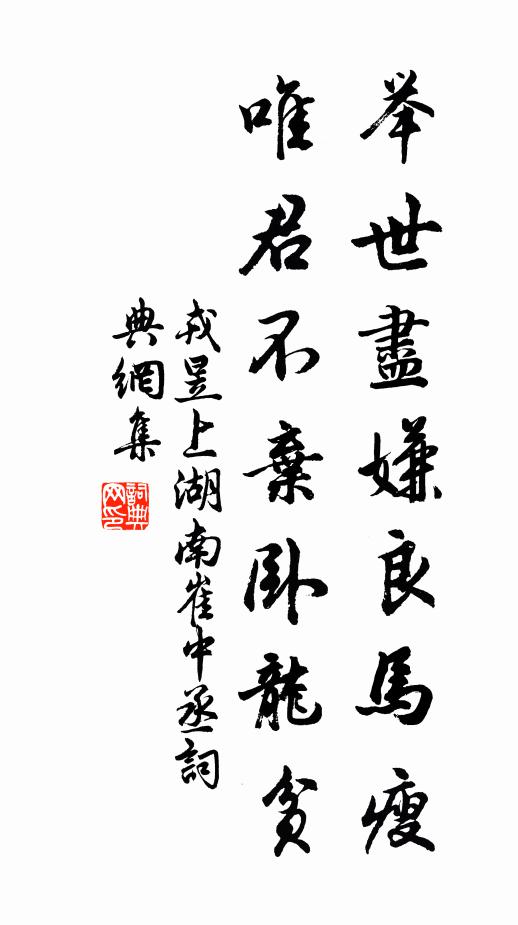 举世盡嫌良馬瘦
唯君不棄卧龍貧
戎昱上湖南崔中丞詞
典網集
詞典网印